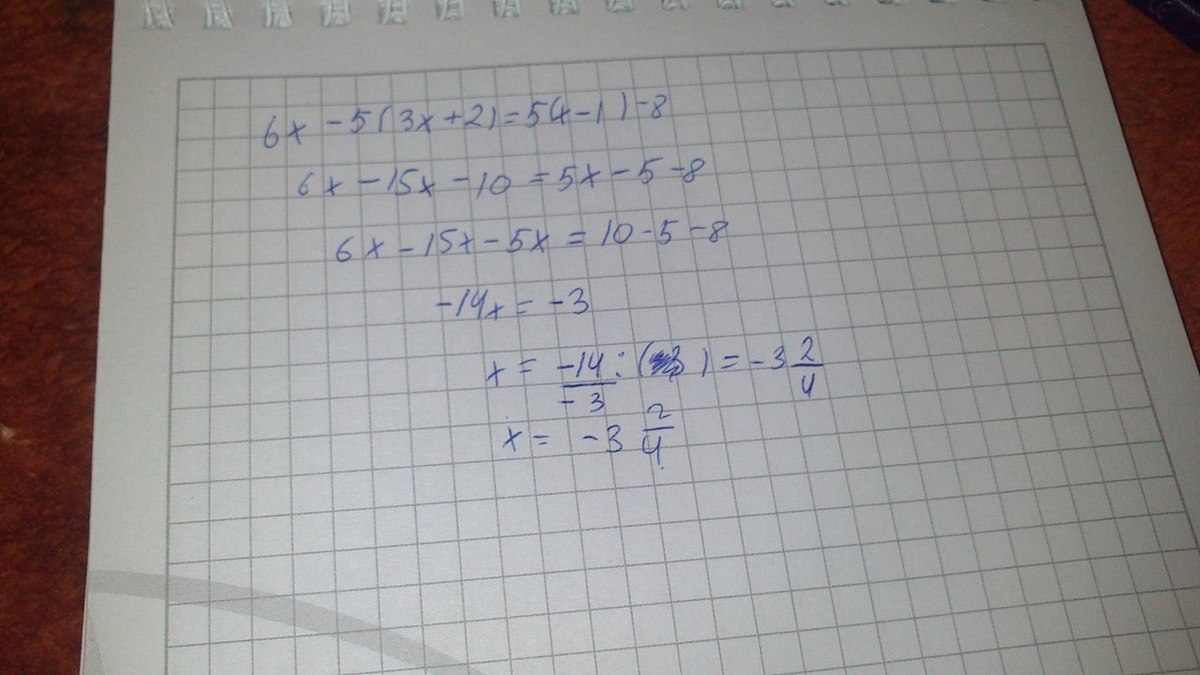 6x - 5(3x+2)=5(x-1)-8
6x - 15x - 10 = 5x - 5 - 8
6x - 15x - 5x = 10 - 5 - 8
-14x = -3
x = -14/-3 : ( ) = -3 2/4
x = -3 2/4